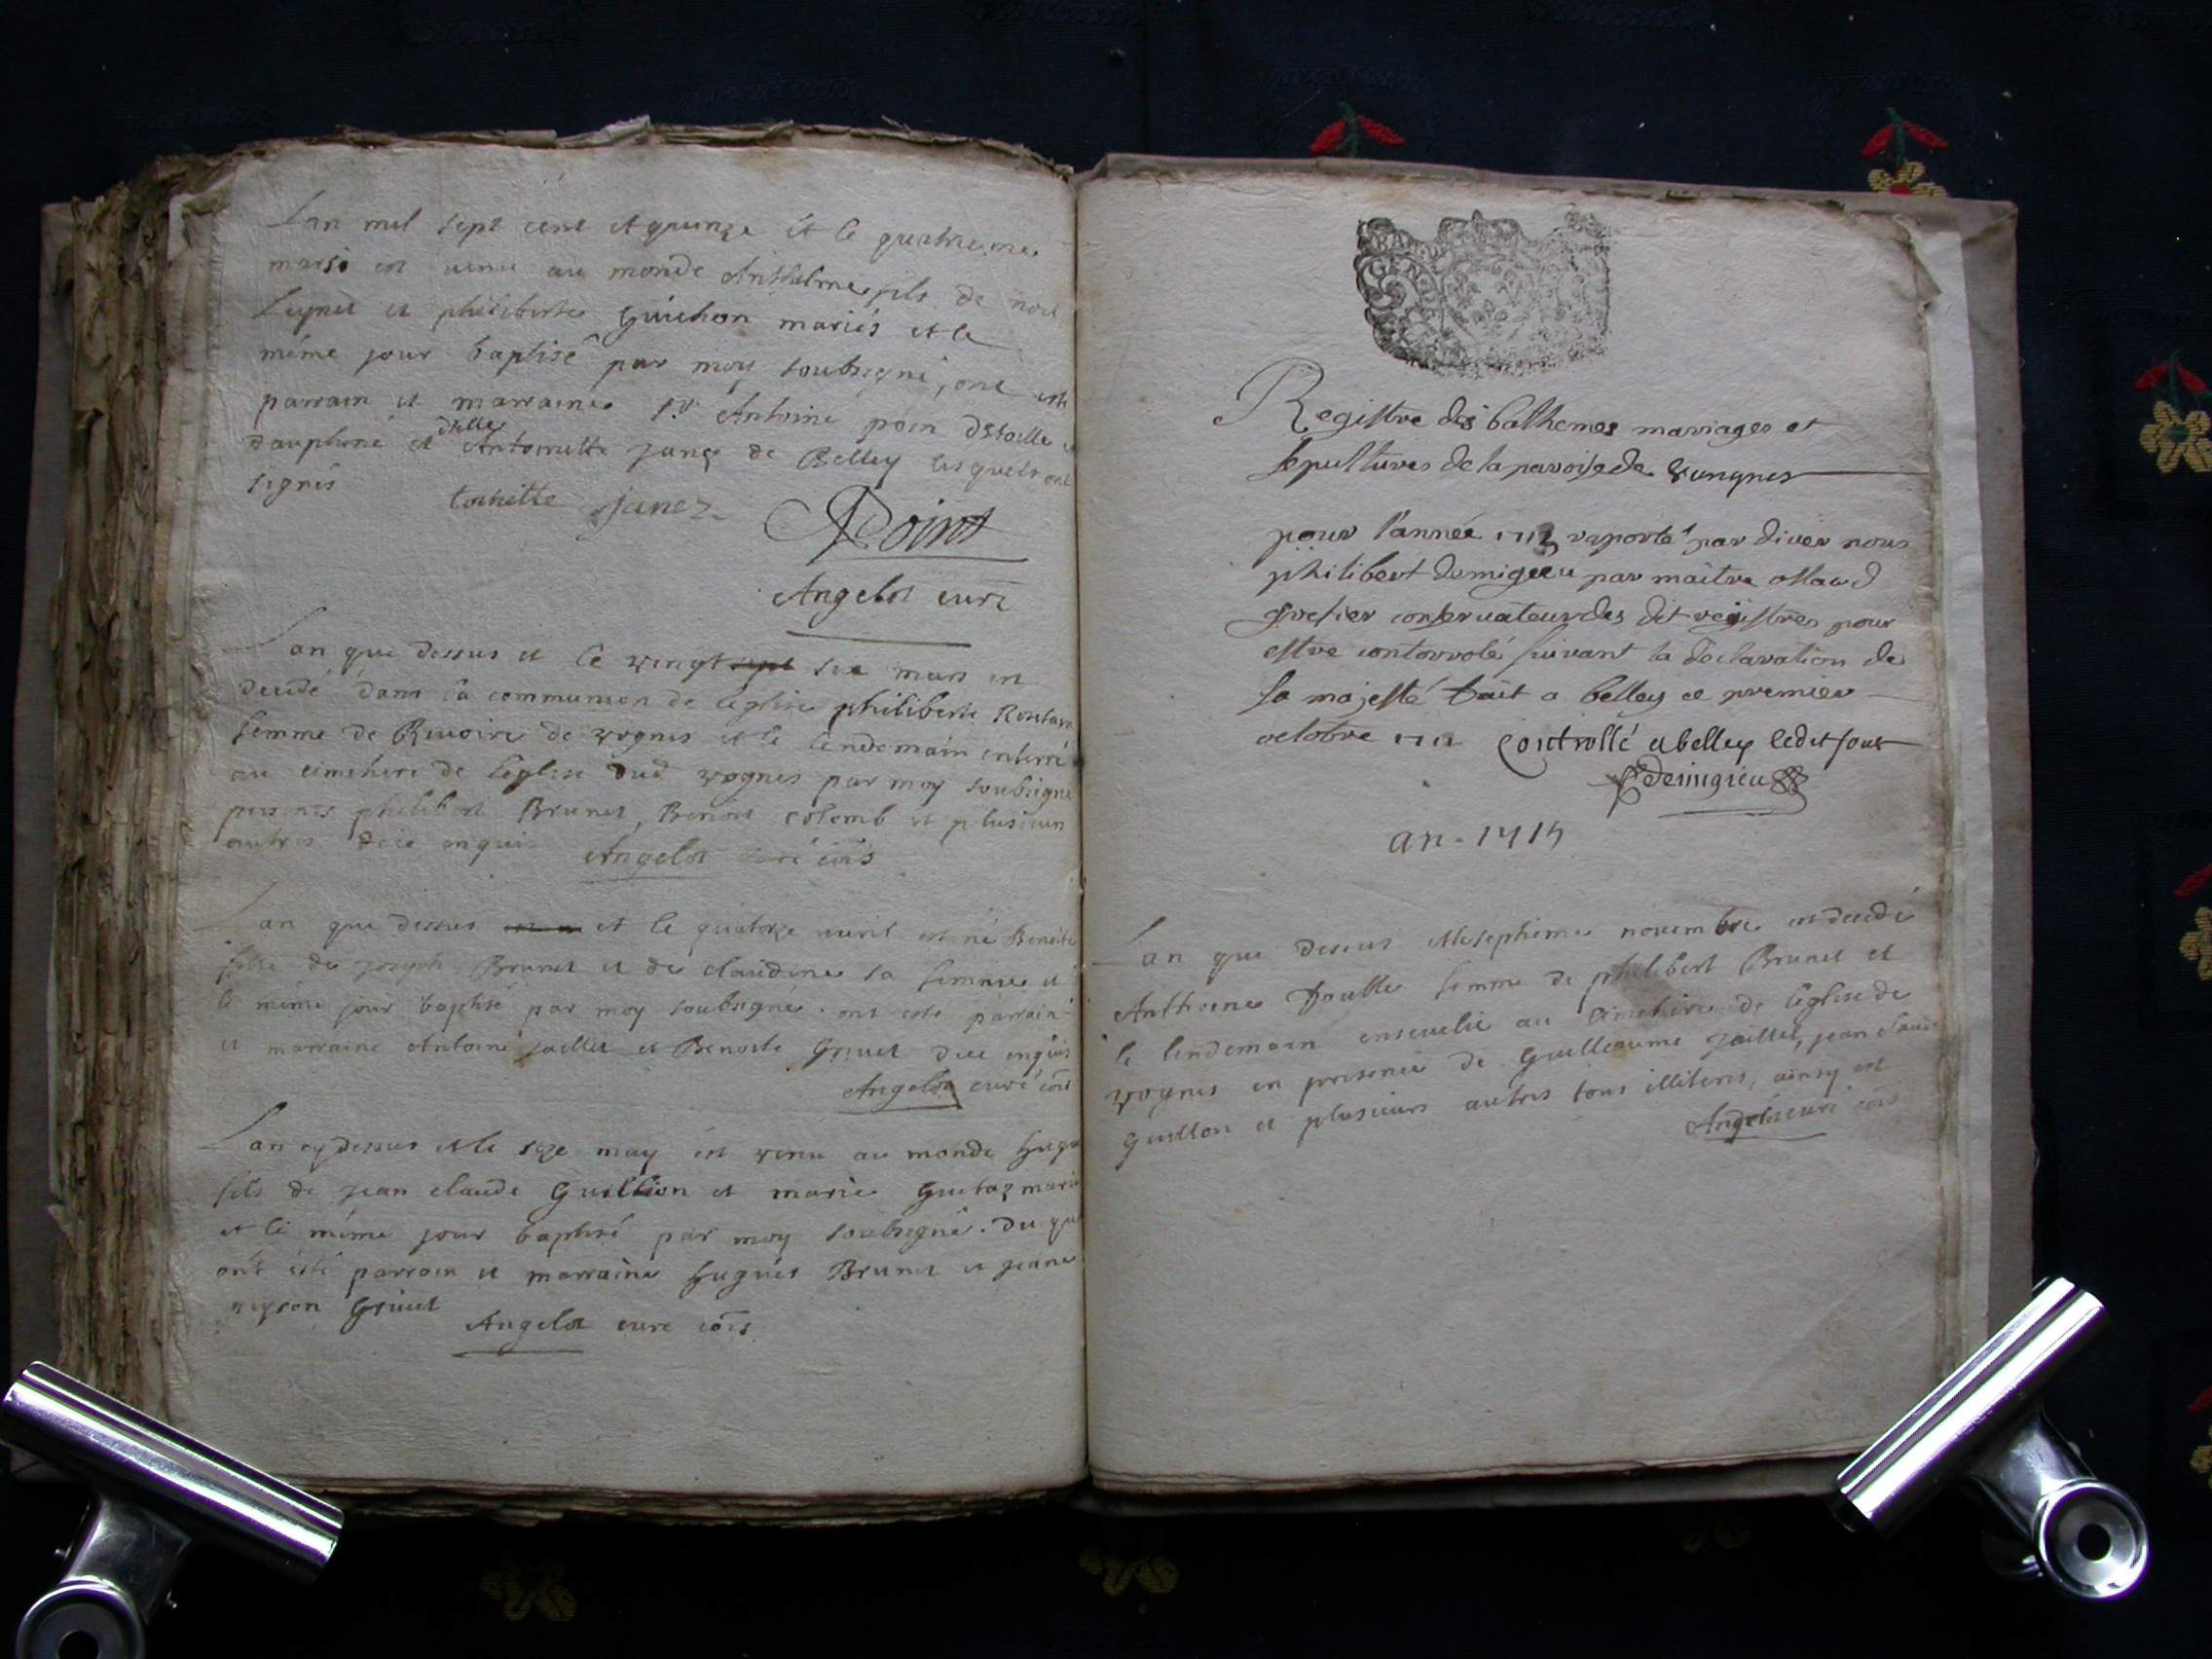 Lan mil sept cent et quinze et le quatrieme
mars est venu au monde Anthelme fils de noel
et philiberte Guichon mariés et le
méme jour baptisé par moy soubsigné, ont esté
parrain et marraine Sr Antoine poin
dauphiné et dlle Antoinette Janez de Belley lesquels ont
signés toinette janez Point
Angelot curé
Lan que dessus et le vingt sept six mars est
decedé dans la communion de leglise philiberte
femme de Rivoire de vognes et le lendemain enterré
au cimetiere de leglise dud vognes par moy soubsigné
philibert Brunet, Benoit colomb et plusieurs
autres de ce enquis Angelot curé
Lan que dessus et le quatorze avril est né Benoite
fille de Joseph Brunet et de claudine sa femme et
le méme jour baptisé par moy soubsigné. ont esté parrain
et marraine Antoine jaillet et Benoite Grivet de ce enquis
Angelot curé
Lan cy dessus et le seze may est venu au monde hugue
fils de jean claude Guillion et marie
et le méme jour baptisé par moy soubsigné. Du
ont esté parrain et marraine hugues Brunet et jeane
Grivet
Angelot curé
GENE
Registre des bathemes mariages et
sepultures de la paroisse de vungnes
pour l'année raporté par diver nous
philibert demigieu par maitre ollaud
grefier conservateur des dit registres pour
estre controrolé suivant la declaration de
sa majesté fait a belley ce premier
octobre Controllé a belley ledit jour
Demigieu
an. 1715
Lan que dessus et le septieme novembre est decedé
Anthoine femme de philibert Brunet et
le lendemain ensevelie au cimetiere de leglise de
vognes en presence de Guilleaume jaillet, jean claude
Guillon et plusieurs autres tous illiteres, ainsy est
Angelot curé